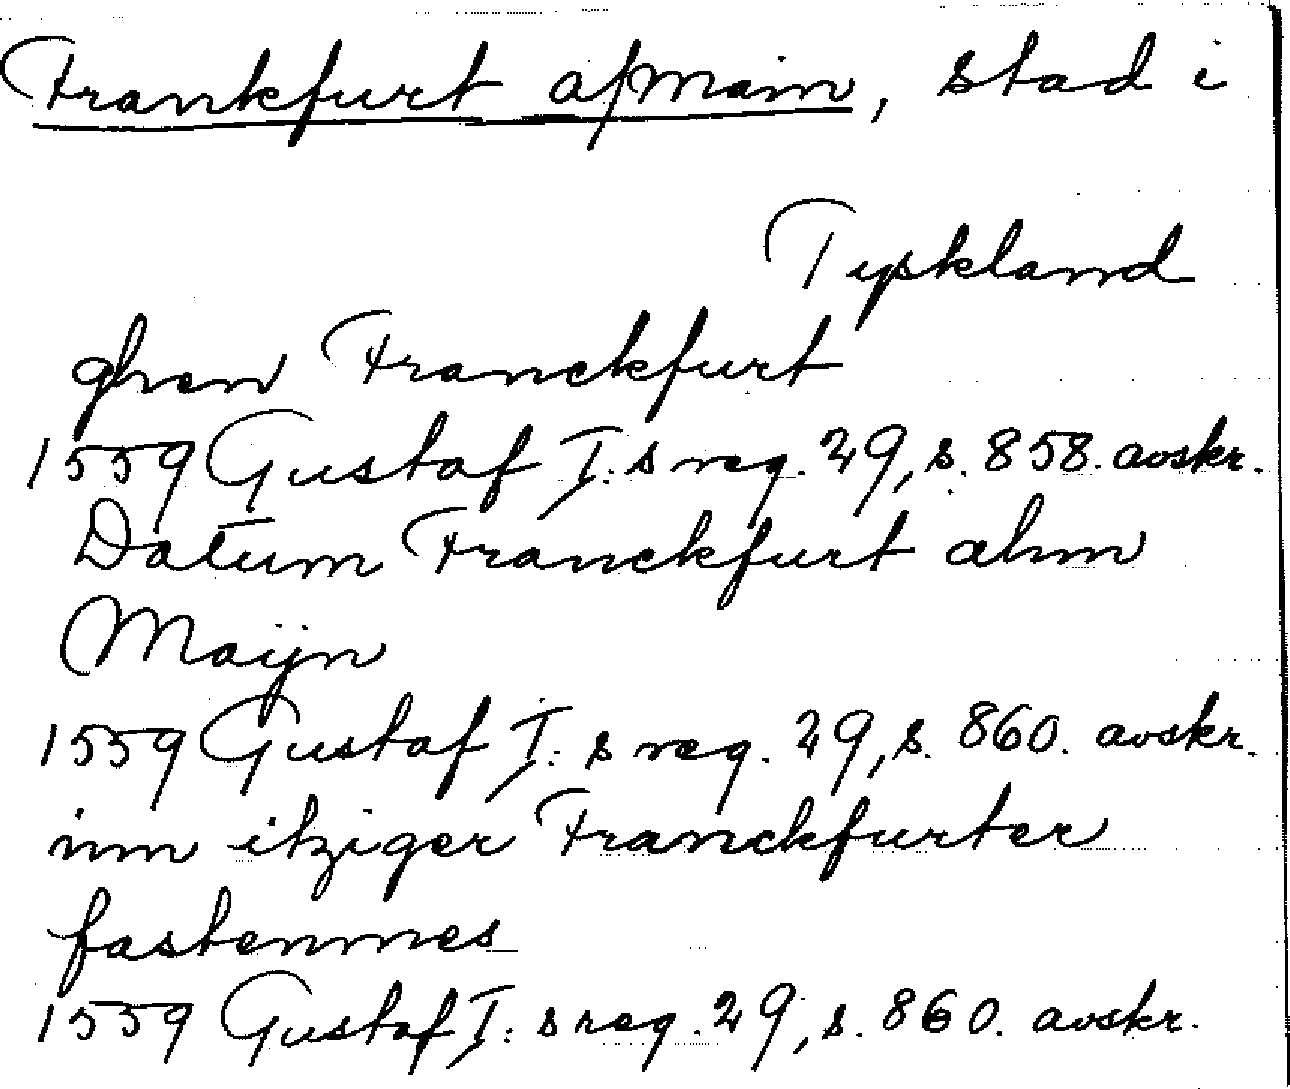 Frankfurt a/Main, stad i
Tyskland
ghen Franckfurt
1559 Gustaf I:s reg. 29, s. 858. avskr.
Datum Franckfurt ahm
Maÿn
1559 Gustaf I:s reg. 29, s. 860. avskr.
inn itziger Franckfurter
fastenmes
1559 Gustaf I:s reg. 29, s. 860. avskr.